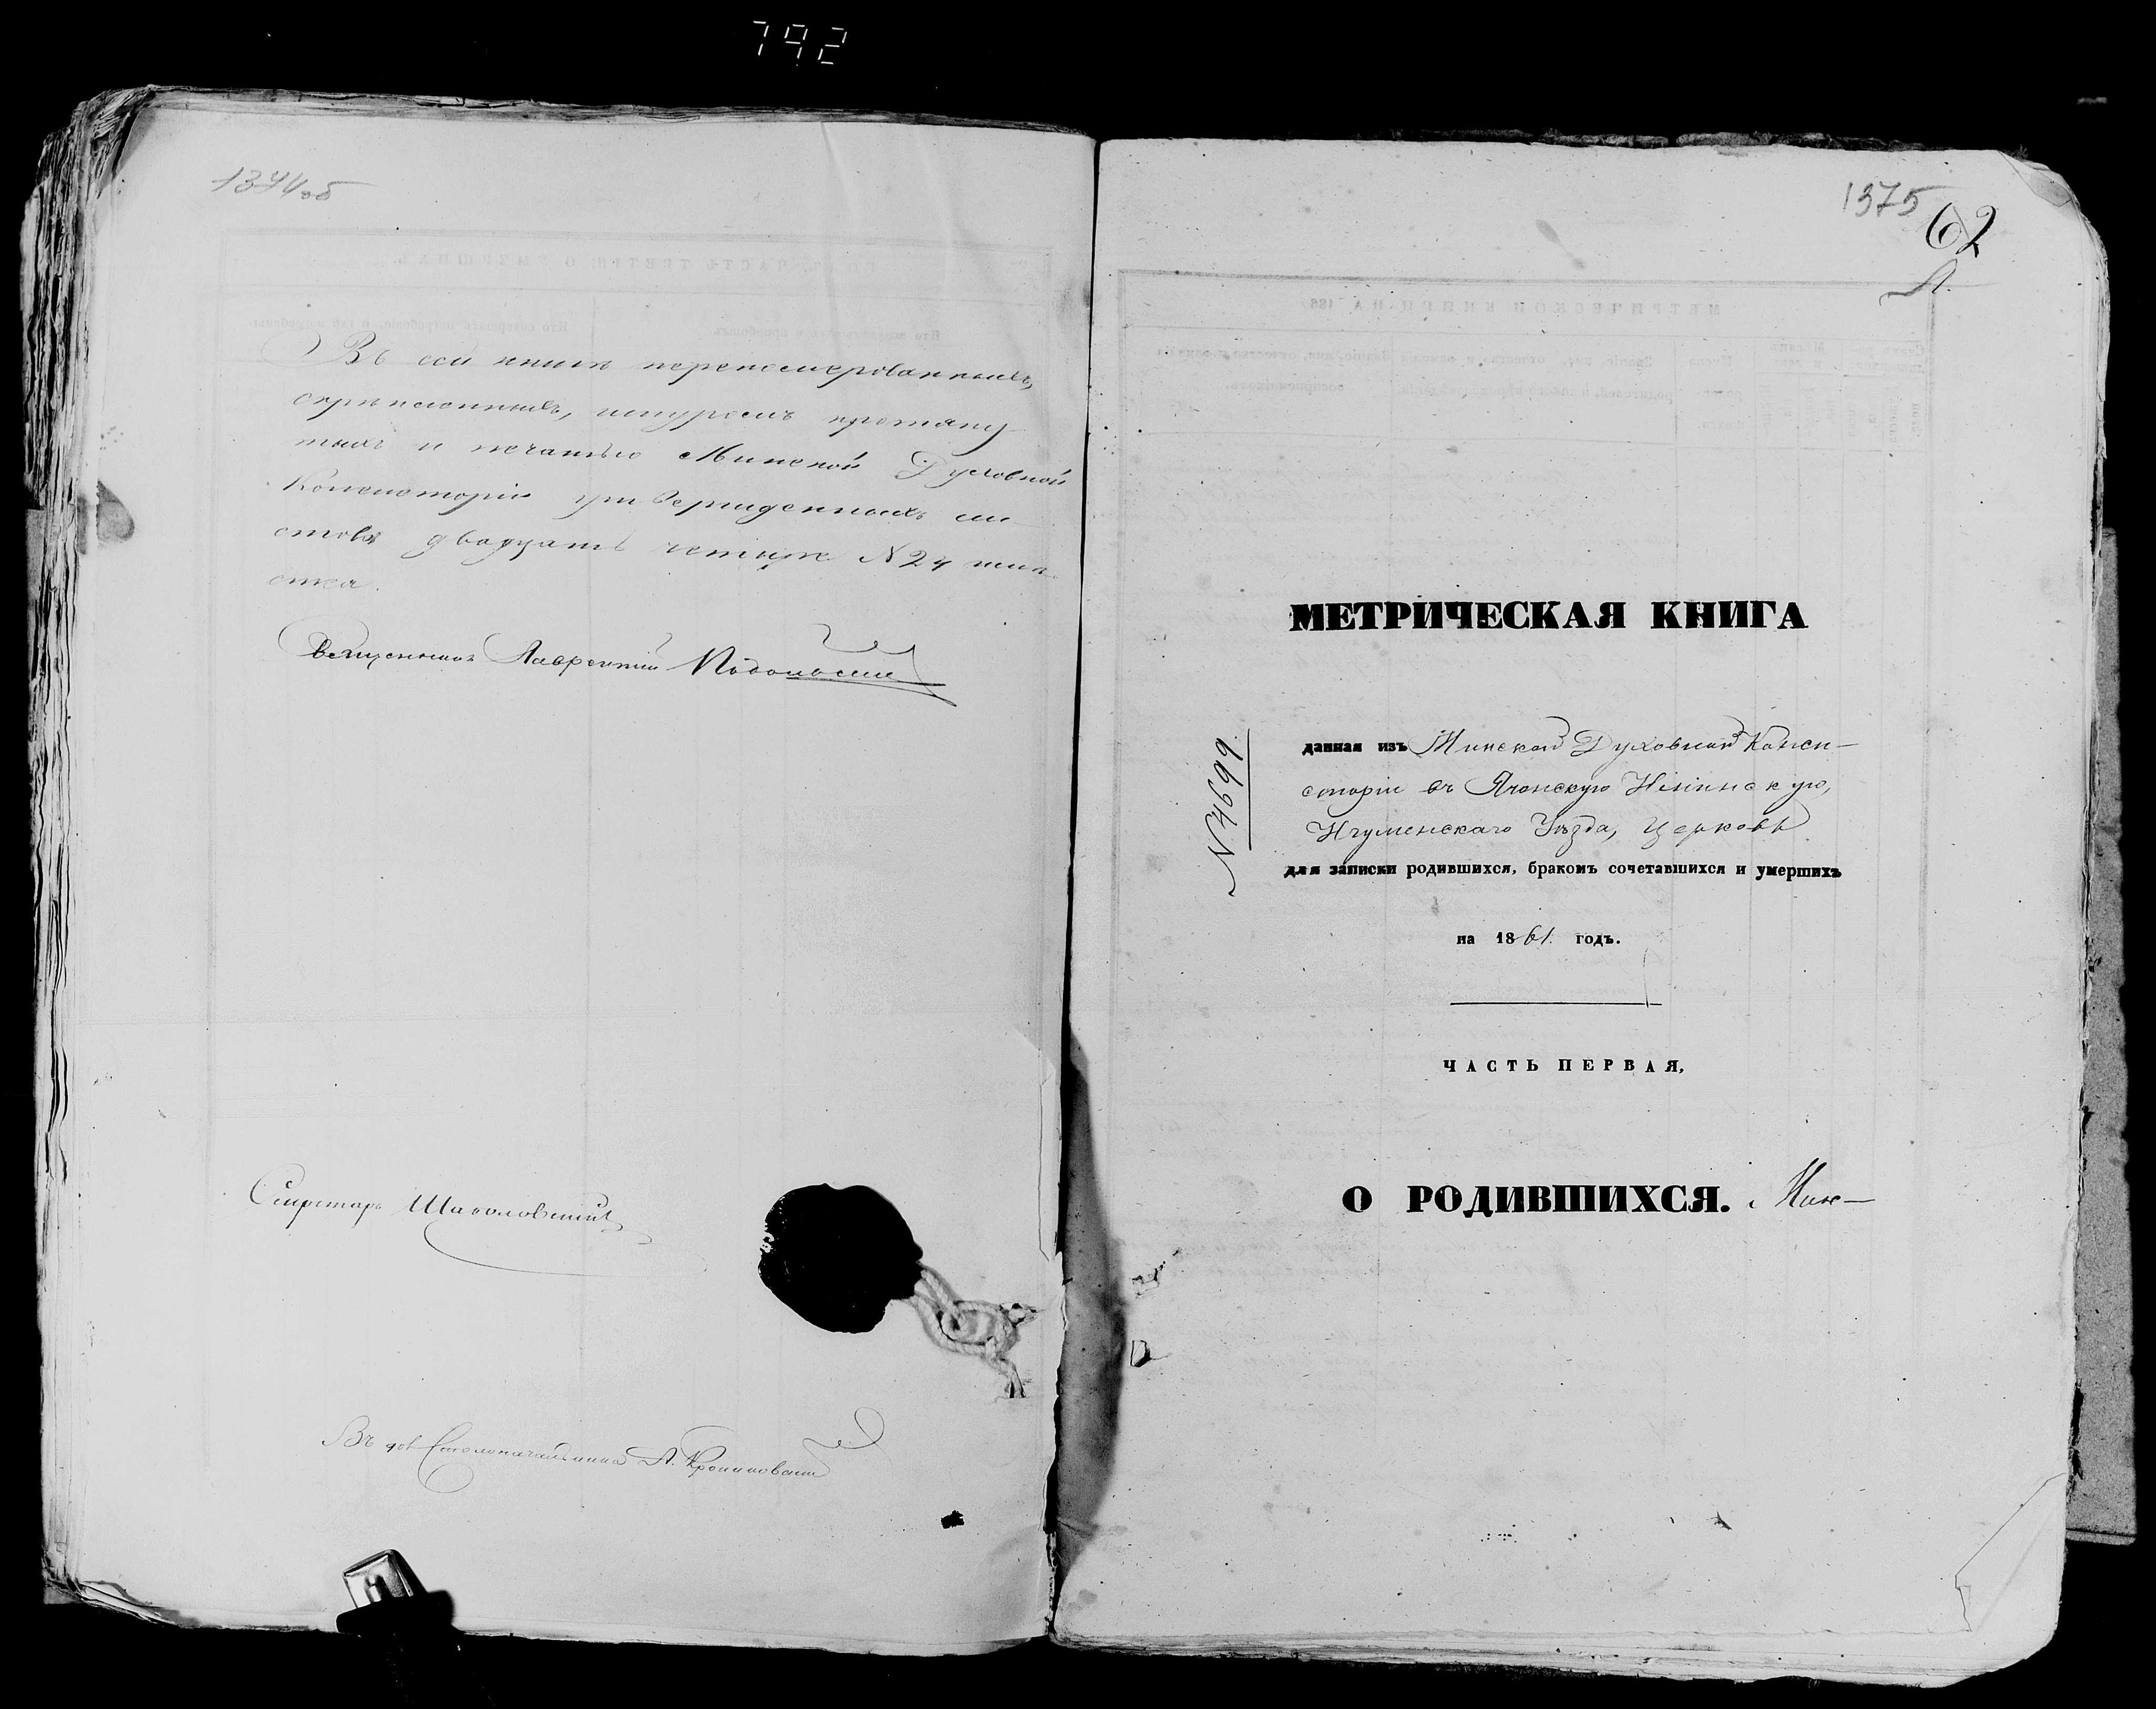 792
1374об
Въ сей книгѣ перенумерованныхъ,
скрѣпленныхъ, шнуромъ протяну-
тыхъ и печатью Минской Духовной
Консисторіи утвержденныхъ ли-
стовъ двадцать четыре N 24
Священникъ Лаврентій
Секретарь
Въ дол Столоначальника А.
1375
62
МЕТРИЧЕСКАЯ КНИГА
N 4699
данная изъ Минской Духовной Конси-
сторіи въ Ячонскую Ильинскую,
Игуменскаго Уѣзда, Церковь
для записки родившихся, бракомъ сочетавшихся и умершихъ
на 1861 годъ.
ЧАСТЬ ПЕРВАЯ,
О РОДИВШИХСЯ. Мин-